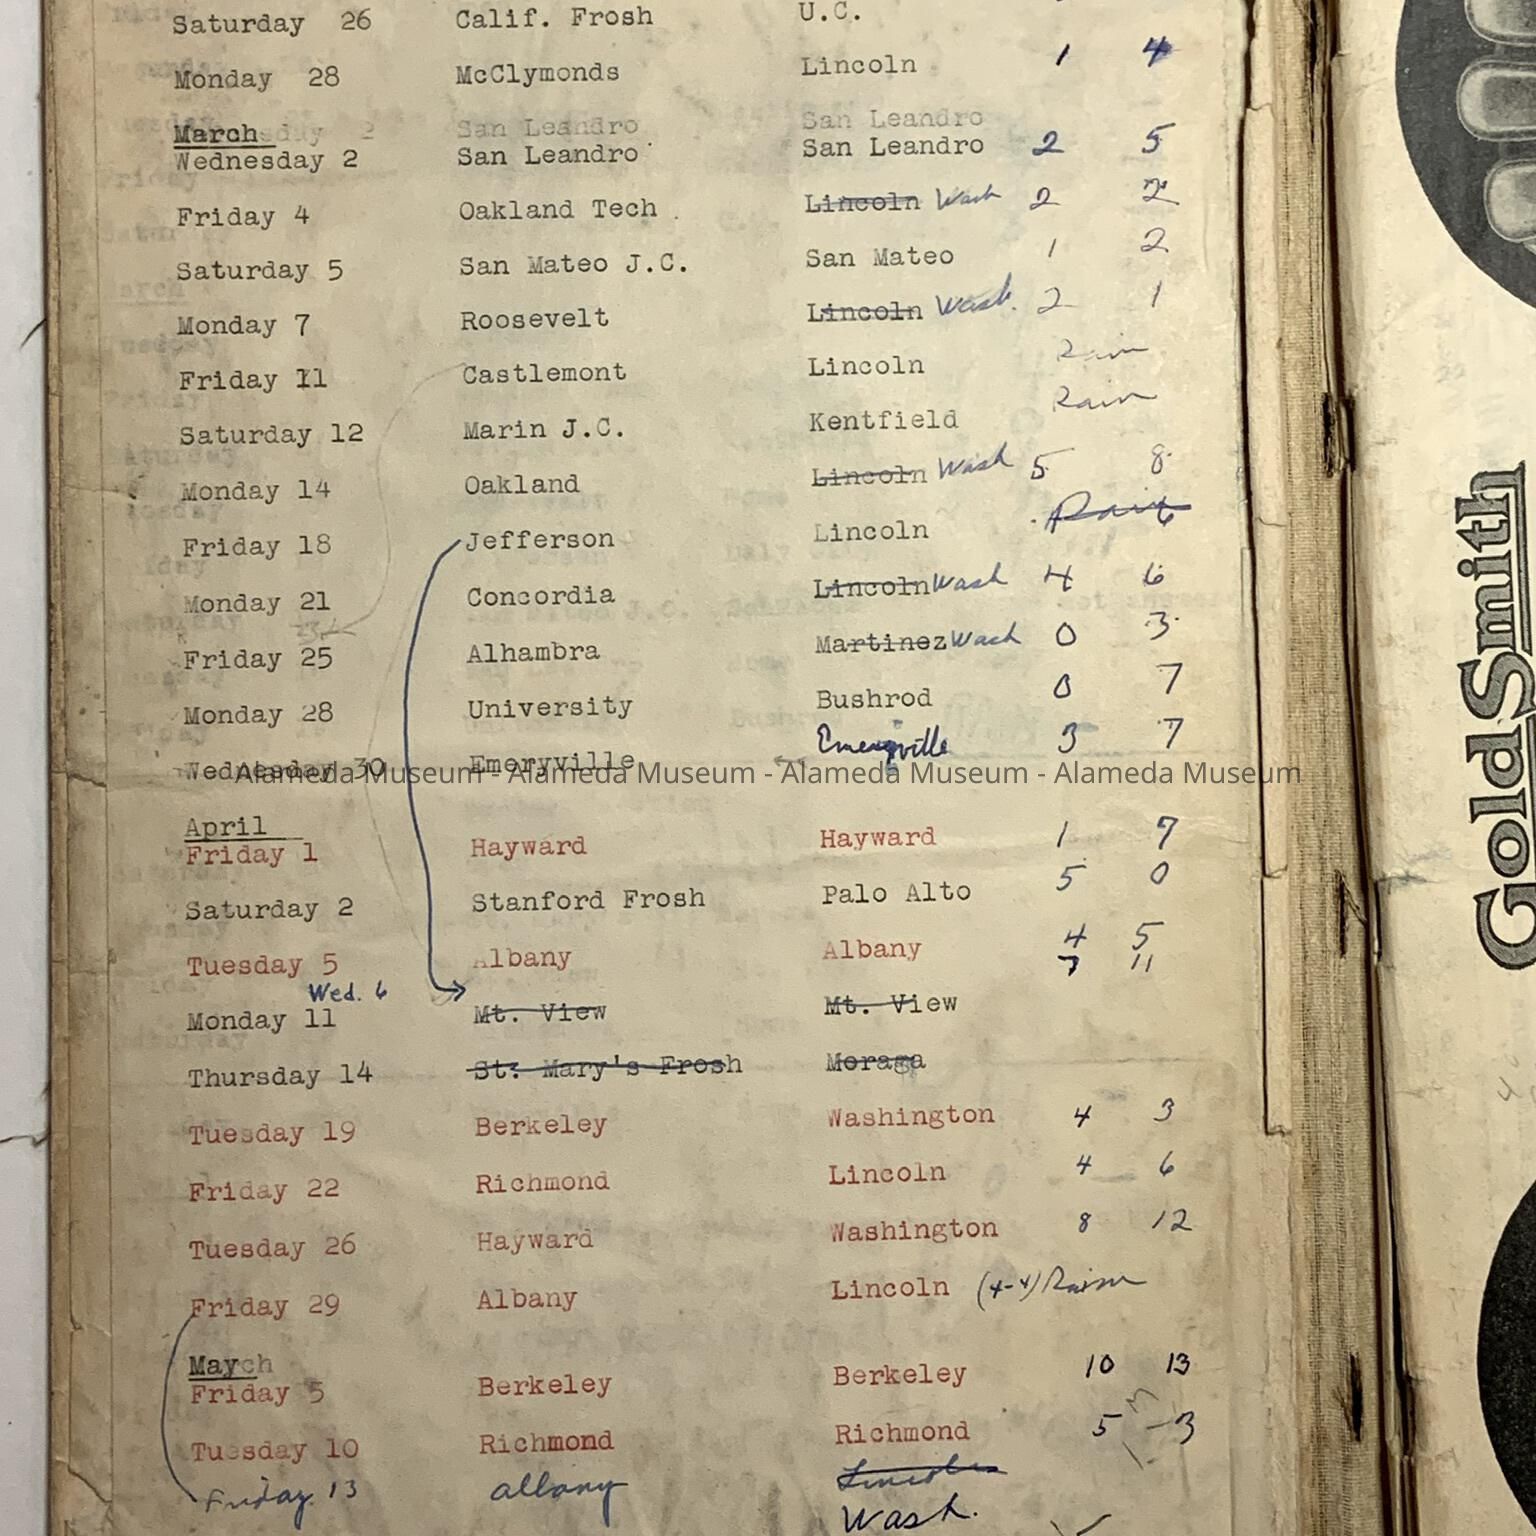 Saturday 26 Calif. Frosh U.C.
Monday 28 McClymonds Lincoln 1 4
San Leandro San Leandro
March
Wednesday 2 San Leandro San Leandro 2 5
Friday 4 Oakland Tech. Lincoln Wash 2 2
Saturday 5 San Mateo J.C. San Mateo 1 2
Monday 7 Roosevelt Lincoln Wash. 2 1
Friday 11 Castlemont Lincoln Rain
Saturday 12 Marin J.C. Kentfield Rain
Monday 14 Oakland Lincoln Wash 5 8
Friday 18 Jefferson Lincoln Rain
Monday 21 Concordia Lincoln Wash 4 6
Friday 25 Alhambra Martinez Wash 0 3
Monday 28 University Bushrod 0 7
Wednesday 30 Emeryville Emeryville 3 7
Alameda Museum - Alameda Museum - Alameda Museum - Alameda Museum
April
Friday 1 Hayward Hayward 1 7
Saturday 2 Stanford Frosh Palo Alto 5 0
Tuesday 5 Albany Albany 4 5
Wed. 6 7 11
Monday 11 Mt. View Mt. View
Thursday 14 St. Mary's Frosh Moraga
Tuesday 19 Berkeley Washington 4 3
Friday 22 Richmond Lincoln 4 6
Tuesday 26 Hayward Washington 8 12
Friday 29 Albany Lincoln (4-4) Rain
May
Friday 5 Berkeley Berkeley 10 13
Tuesday 10 Richmond Richmond 5 - 3
Friday 13 albany Lincoln
Wash.
GoldSmith